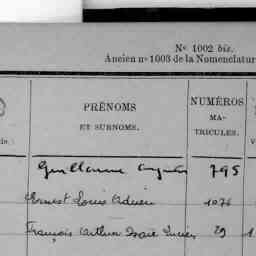 No 1002 bis.
Ancien no 1003 de la Nomenclatur
PRÉNOMS
ET SURNOMS.
NUMÉROS
MA-
TRICULES.
Guillaume 795
Ernest Louis Adrien 1076
François Arthur Isaïe Lucien 29 1